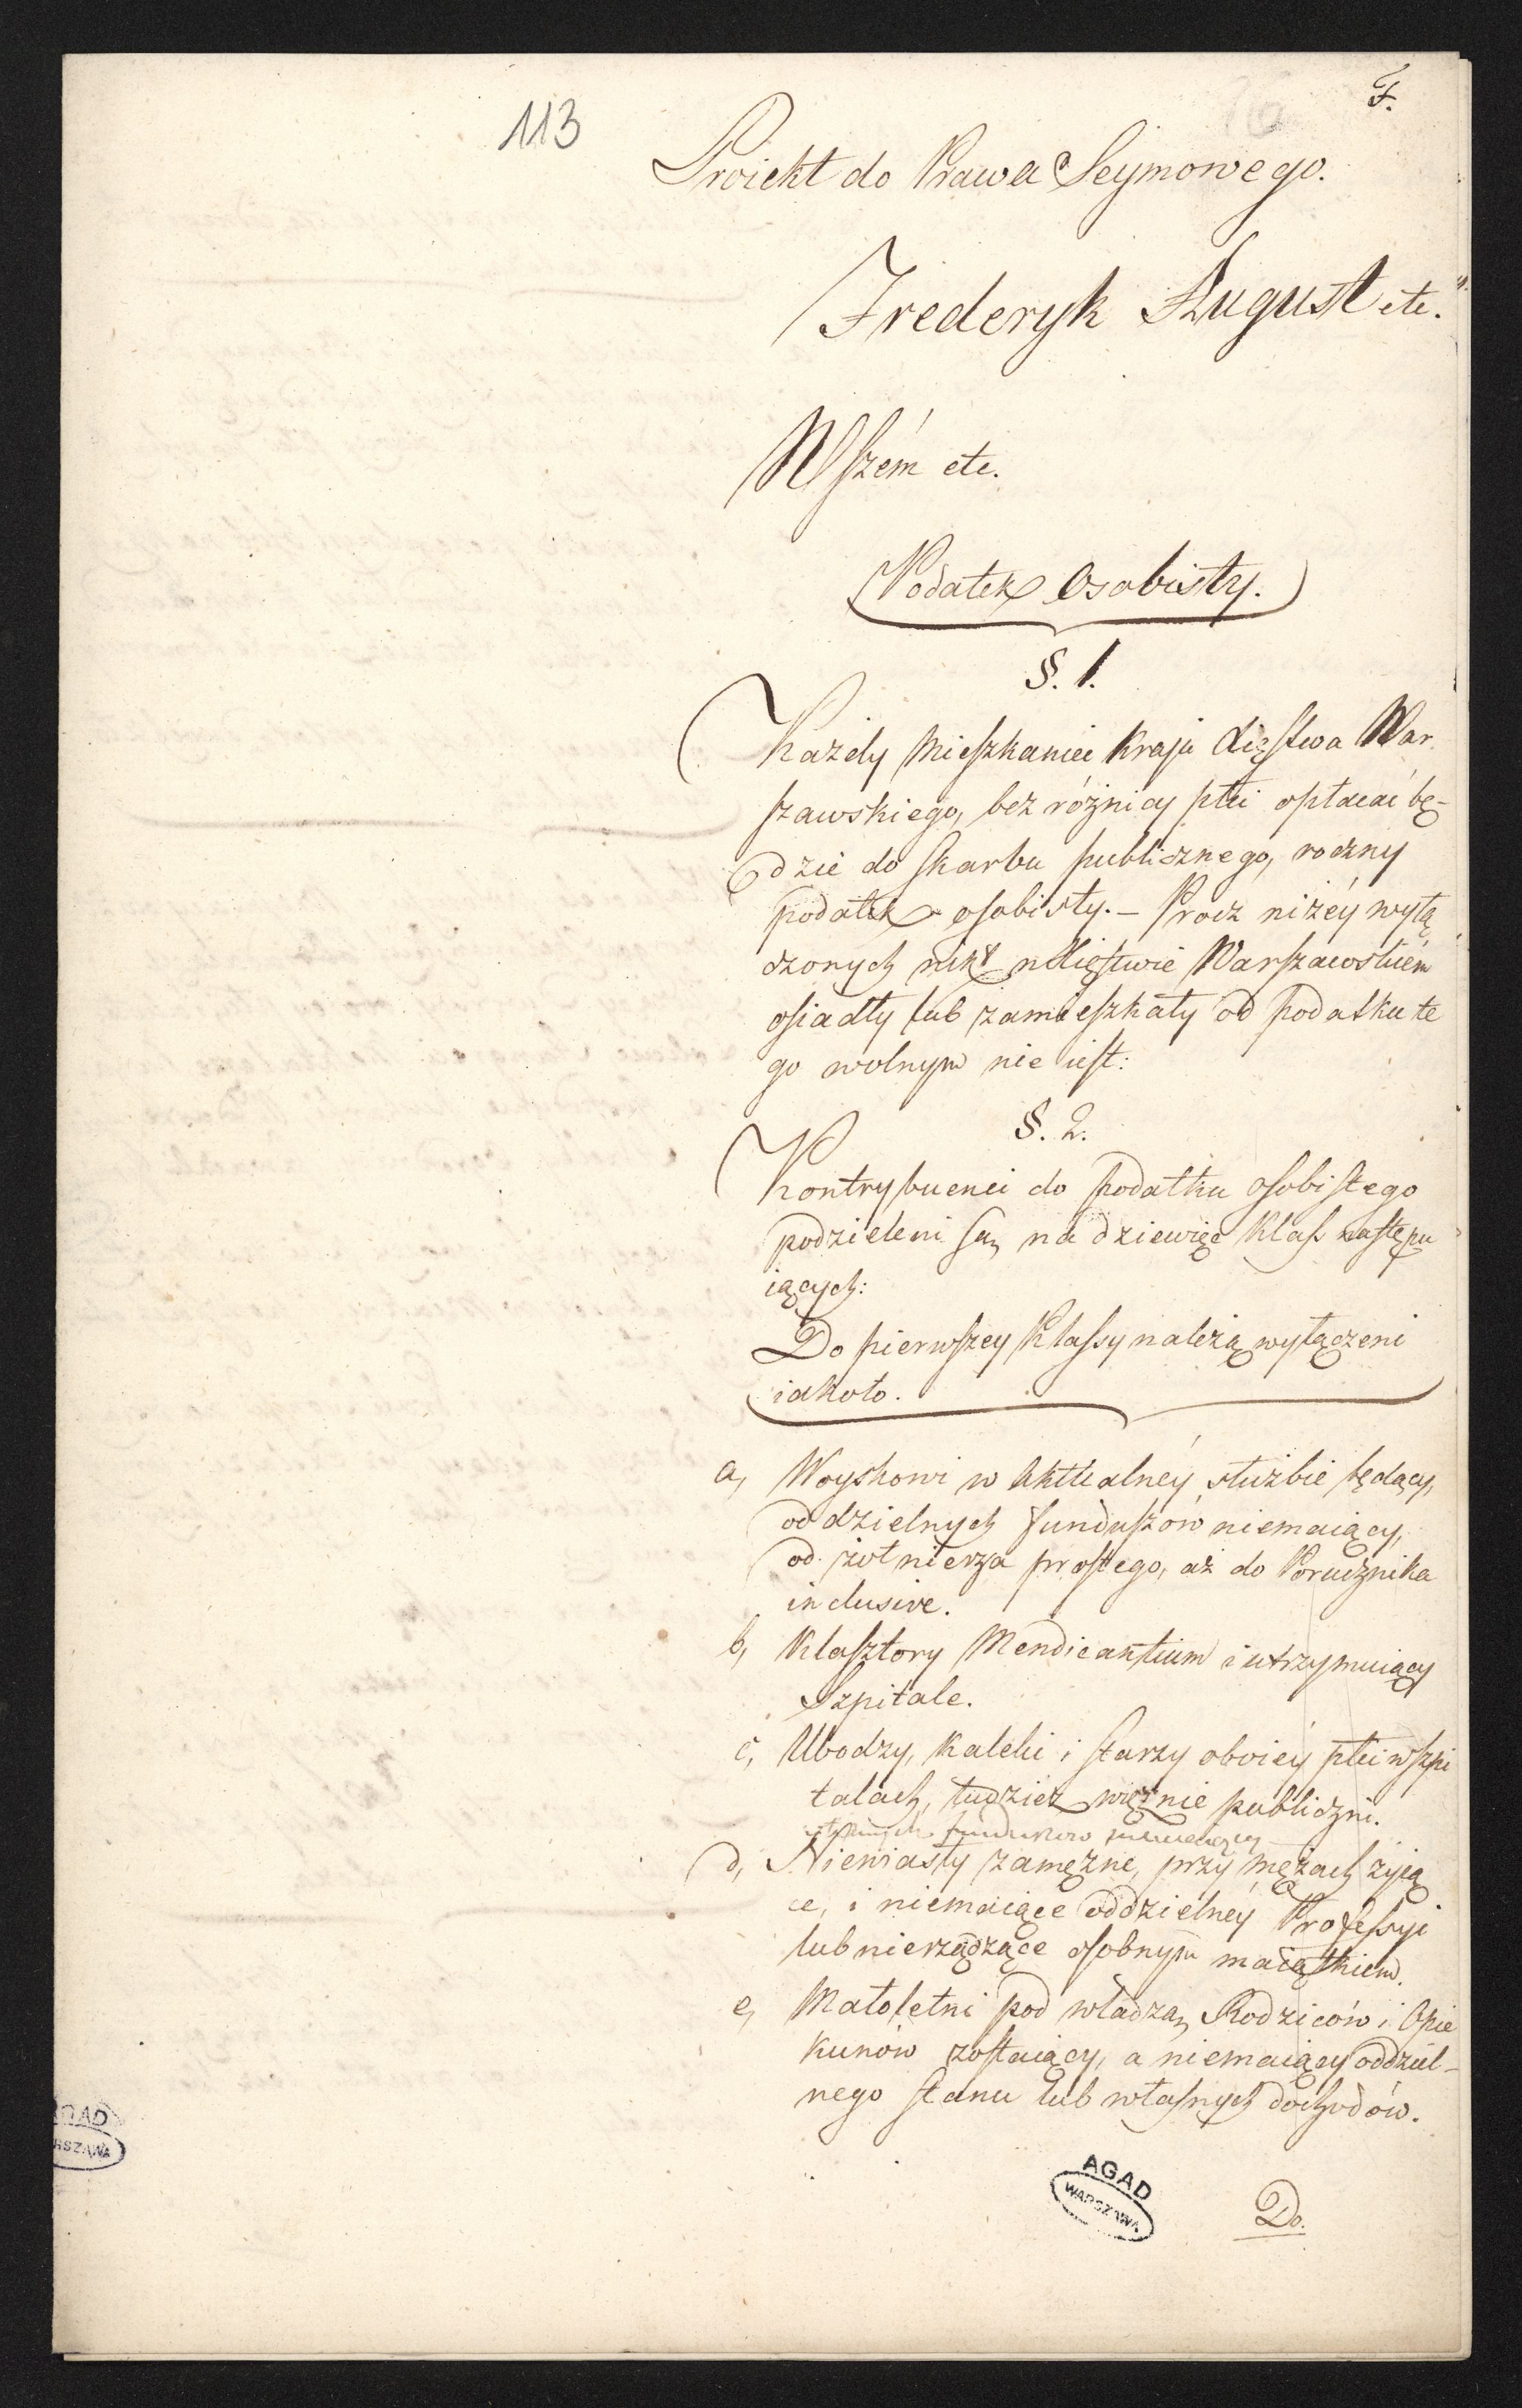 F.
113
Proiekt do Prawa Seymowego.
Frederyk August etc.
Wszém etc.
Podatek Osobisty.
§. 1.
Każdy Mieszkaniec Kraju Xięstwa War
szawskiego, bez różnicy płci opłacać bę-
dzie do skarbu publicznego, roczny
podatek osobisty. – Procz niżéy wyłą
czonych nikt w Xięstwie Warszawskiém
osiadły lub zamieszkały od podatku te
go wolnym nie iest:
§. 2.
Kontrybuenci do podatku osobistego
podzieleni są na dziewięć Klass następu
iących:
Do pierwszey Klassy należą wyłączeni
iakoto.
a, Woyskowi w aktualnéy służbie będący,
oddzielnych funduszów niemaiący,
od żołnierza prostego, aż do Porucznika
inclusive.
b, Klasztory Mendicantium i utrzymuiący
Szpitale.
c, Ubodzy, Kaleki i starzy oboiéy płci w szpi
talach, tudzież więźnie publiczni.
funduszow niemaiący
d, Niewiasty zamężne, przy mężach żyią
ce, i niemaiące oddzielnéy Professyi
lub nierządzące osobnym maiątkiem.
e, Małoletni pod władzą Rodziców i Opie
kunów zostaiący, a niemaiący oddziel-
nego stanu lub własnych dochodów.
AGAD
WARSZAWA
AGAD
WARSZAWA
Do.